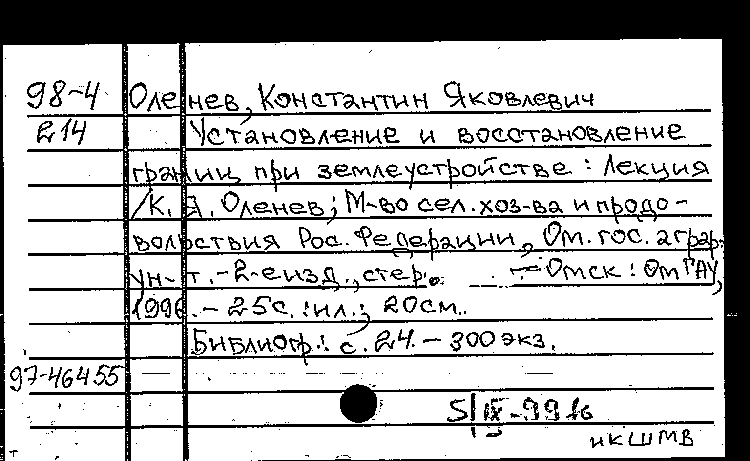 98-4 Оленев, Константин Яковлевич
214 Установление и восстановление
границ при землеустройстве : Лекция
/К. Я. Оленев; М-во сел. хоз-ва и продо-
вольствия Рос. Федерации, Ом. гос. аграр.
ун-т. - 2-е изд., стер. - Омск : ОмГАУ,
1996. - 25 с. : ил.; 20 см.
Библиогр.: с. 24. - 300 экз.
97-46455
5/IX-99
нкшмв